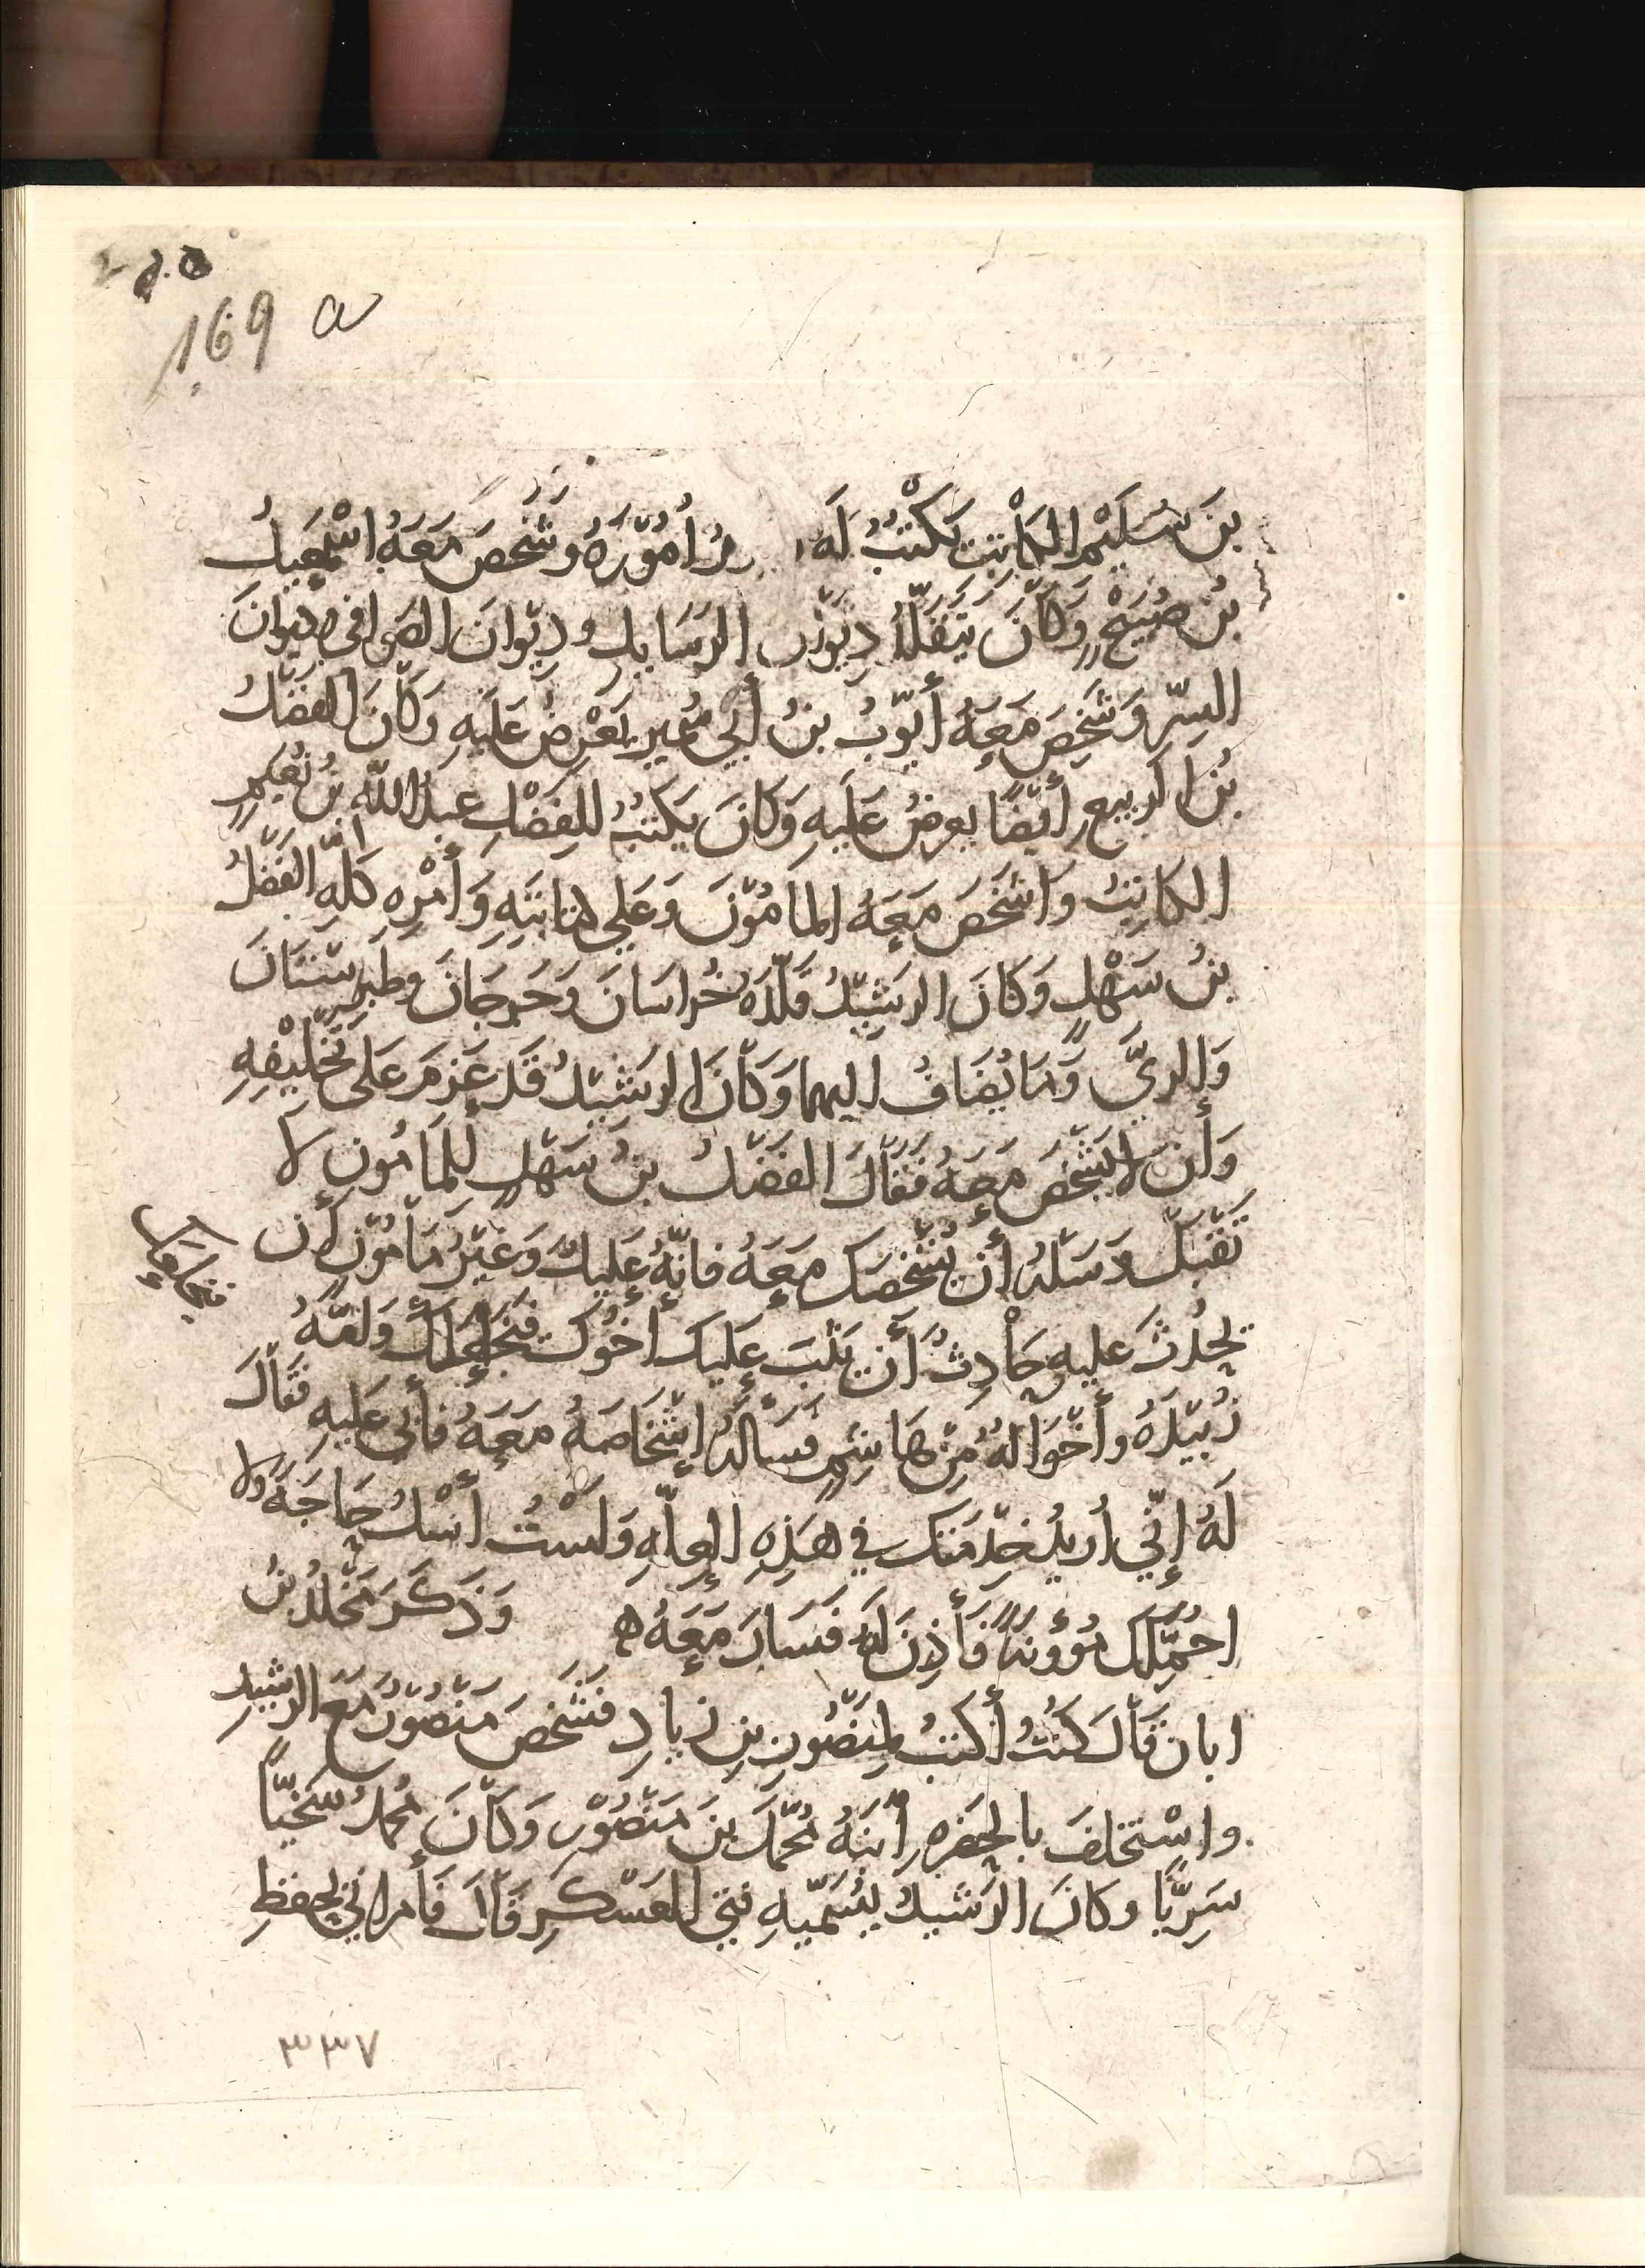 169 a
بنَ سُلَيْم الكَاتِبَ يَكْتُبُ لَه أُمُوْرَهُ وشَخَصَ مَعَهُ اسْمعِيلُ
بنُ صُبَيْحٍ وَكَانَ يَتَقَلَّدُ دِيوَان الرَسَايلِ ودِيْوَانَ الصَوافى وديوَانَ
السِرّ وَشَخَصَ مَعَهُ أيّوبُ بنُ أبي سُمَير يَعْرِضُ عَلَيهِ وَكَانَ الفَضْلُ
بْنُ الربيع أيْضًا يعرِضُ عَلَيهِ وَكَانَ يَكتبُ للفَضْلِ عبدُ اللّه بنُ نُعَيمٍ
الكاتِبُ وَاشْخَصَ مَعَهُ المامُوْنَ وَعَلى كتابَتِهِ وَأمْرِهِ كُلّهِ الفَضْلُ
بنُ سَهْلٍ وَكَانَ الرشِيْدُ قَلّدَهُ خُراسَانَ وَجُرجَانَ وطَبَرِسْتَانَ
وَالرىَّ وَمَا يُضَافُ اليها وَكَانَ الرشِيْدُ قَد عَزمَ عَلى تَخْلِيْفِهِ
وَأن لا يَشْخَصَ مَعَهُ فقَالَ الفَضْلُ بنُ سَهْلٍ لِلمَامُونِ لا
تَقْبَل وَسَلهُ أن يُشْخِصَك مَعَهُ فانّهُ عَلِيلٌ وَغَيْرُ مَامُوْنٍ أن
يَحْدُثَ عليهِ حَادِثٌ أن يَثبَ عَلَيكَ أخُوك فَيَخْلَعَكَ وَامُّهُ
زُبَيْدَهُ وأخْوَالهُ مِنْ هَاشِمٍ فسَالَهُ إشْخَاصَهُ مَعَهُ فَأبَى عَلَيهِ فقَالَ
لَهُ إنّي اُريدُ خِدْمَتَك في هَذِهِ العِلّهِ وَلسْتُ أسْلُ حَاجَهً وَلا
احَمّلك مُؤُونَهً فَأذِنَ لَهُ فَسَارَ مَعَهُ ه وَذَكَرَ مَخْلَدُ بنُ
ابان قَالَ كنتُ أكتبُ لمنصُورِ بنِ زيادٍ فشَخَصَ مَنْصُوْرٌ مَعَ الرشيدِ
واسْتَخلفَ بالحَضرهِ ابْنَهُ مُحَمّدَ بنَ مَنْصُوْرٍ وَكَانَ مُحمدُ سَخِيّاً
سَرِيًّا وكانَ الرَشيدُ يُسَمّيهِ فتى العَسْكَرِ قَالَ فأمرانى بحفظِ
٣٣٧